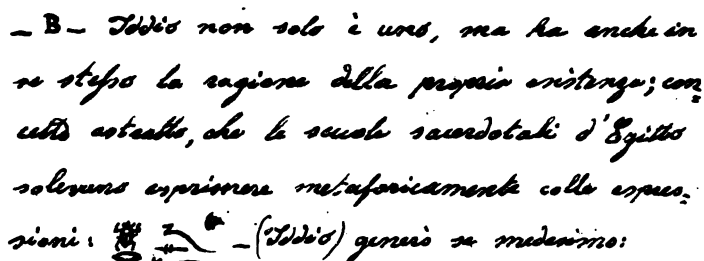 – B – Iddio non solo è uno, ma ha anche in
se stesso la ragione della propria esistenza; con=
cetto astratto, che le scuole sacerdotali d'Egitto
solevano esprimere metaforicamente colle espres=
sioni: – (Iddio) generò se medesimo: